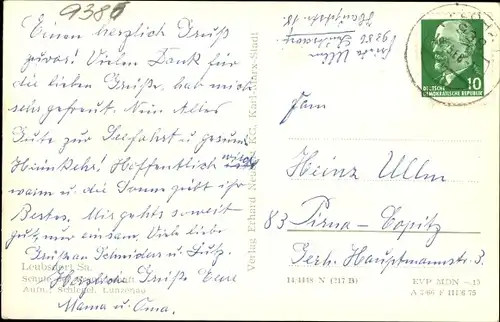 9386
Einen herzlich Gruß
zuvor! Vielen Dank für
die lieben Grüße, hab mich
sehr gefreut. Nun Alles
Gute zur Seefahrt u. gesund
Heimkehr! Hoffentlich wird's
warm u. die Sonne gibt ihr
Bestes. Mir gehts soweit
gut, nur einsam. Viele liebe
Grüße an Schneiders u. Lutz.
Herzlich Grüße Eure
Mama u. Oma.
Leubsdorf Sa.
Aufn.: Schlegel, Lunzenau
Verlag Erhard Neubert KG, Karl-Marx-Stadt
Ulm
9386
Hauptstr. 18
DEUTSCHE
DEMOKRATISCHE REPUBLIK
10
Fam
Heinz Ullm
83 Pirna-Copitz
Gerh. Hauptmannstr. 3
14/4448 N (717 B)
EVP MDN -.15
A 2/66 F 111/6/75